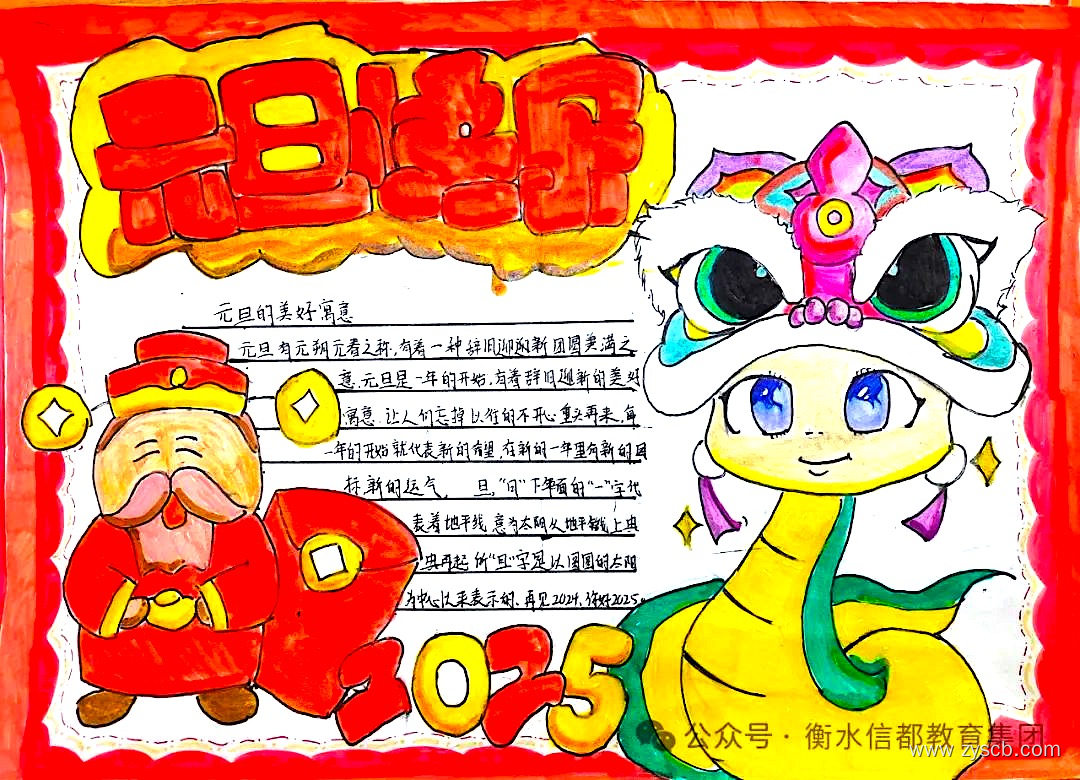 元旦快乐
元旦的美好寓意
元旦有元朔元春之称,有着一种辞旧迎新团圆美满之
意,元旦是一年的开始,有着辞旧迎新的美好
寓意,让人们忘掉以往的不开心重头再来,每
一年的开始就代表新的希望,在新的一年里有新的目
标新的运气, 旦,“日”下年面的“一”字代
表着地平线,意为太阳从地平线上
冉再起,所“旦”字是以圆圆的太阳
为中心以来表示的,再见2024,你好2025。
2025
公众号·衡水信都教育集团
www.zyscb.com